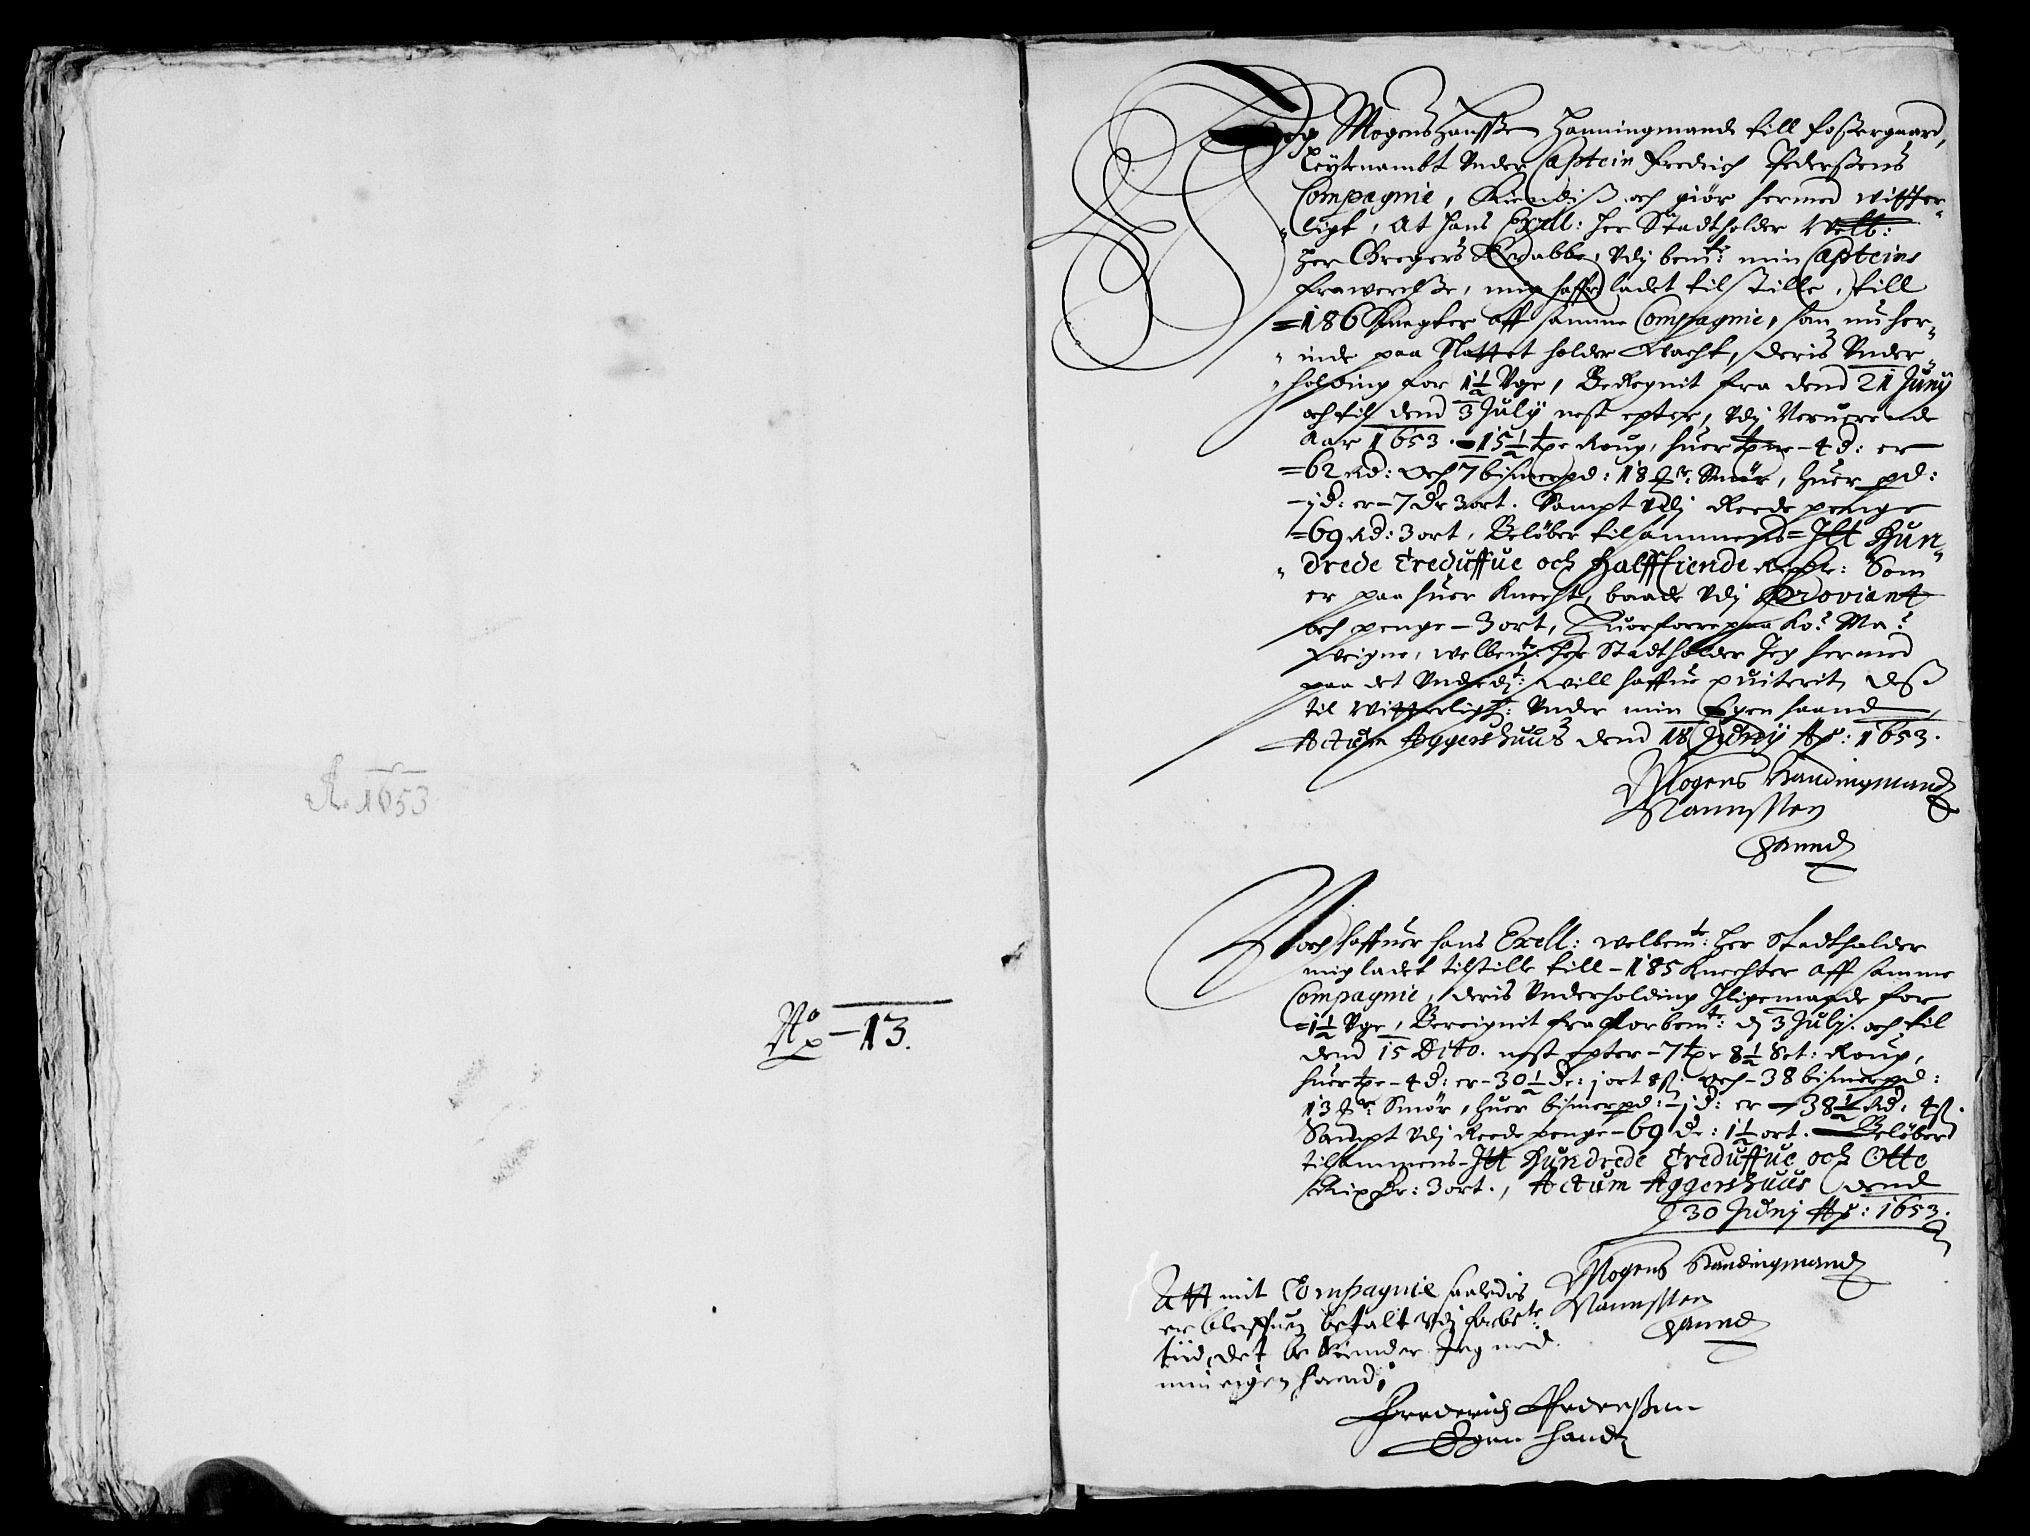 Ao 1653
No – 13.
Jeg Mogens Hanssen Hanningmand till Fossergaard,
Leytenambt Vnder Captein Fredrich Pederssens
Compagnie, Kiendis och giør hermed witter-
ligt, At Hans Excell: Her Stadtholder Welb:
Her Gregers Krabbe, Vdj bemte: min Capteins
frawerelsse, mig haffr ladet tilstille, till
=186 Knegter aff samme Compagnie, som nu her-
inde paa Slattet holder Wacht, deris Vnder-
holding for 1½ Vge, Beregnit fra dend 21 Junÿ
och til dend 3 Julÿ nest epter, Vdj Neruerende
Aar 1653. – 15½ tpe Roug, huer tpe – 4 d: er
=62 Rd: och 7 bismerpd: 18 Smør, huer pd:
– j d: er – 7 Dr 3 ort. Sampt Vdj Reede penge
=69 Rd: 3 ort, Beløber tilsammens = Jtt Hun-
drede Treduffue och Halffiende Rixdlr: Som
er paa huer Knecht, baade Vdj Proviant
och penge – 3 ort, Huorforre paa Ko: Ma:
Weigne, welbemte: Her Stadtholder Jeg hermed
paa det Vnderdt: will haffue quiterit, dess
til Witterligh: Vnder min Egen haand,
Actum Aggershuus dend 18 Junÿ Ao: 1653.
Mogens Handingmand
Hannssen
Haannd
Noch haffuer hans Excell: welbemte: Her Stadtholder
mig ladet tilstille till – 185 Knechter aff samme
Compagnie, deris Vnderholding Jligemaade for
=1½ Vge, Bereignit fra Forbemte: d 3 Julj. och til
dend 15 Dito. nest epter – 7 tpe 8½ Set: Roug,
huer tpe – 4 d: er – 30½ dr: j ort 8 s: och – 38 bismerpd:
13 Smør, huer bismerpd: – j d: er – 38½ Rd. 4 s.
Sampt Vdj Reede penge – 69 dr: 1½ ort. Beløber
tilsammens – Jtt Hundrede Treduffue och Otte
Rixdr: 3 ort., Actum Aggershuus dend
30 Junj Ao: 1653.
Mogens Handingmand
Hannssen
Haannd
Att mit Compagnie saaledis
er bleffuen betalt Vdj forbete:
tiid, det bekiender Jeg med
min eigen haand,
Frederich Pederssen
Egen Haand